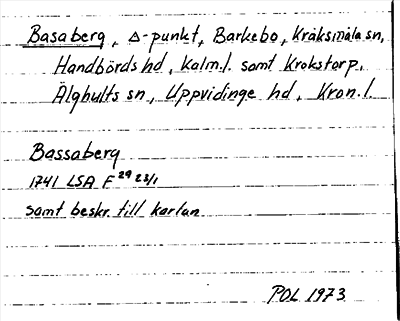 Basaberg, Δ-punkt, Barkebo, Kråksmåla sn,
Handbörds hd, Kalm.l. samt Krokstorp,
Älghults sn, Uppvidinge hd, Kron.l.
Bassaberg
1741 LSA F 29 23/1
samt beskr. till kartan
POL 1973